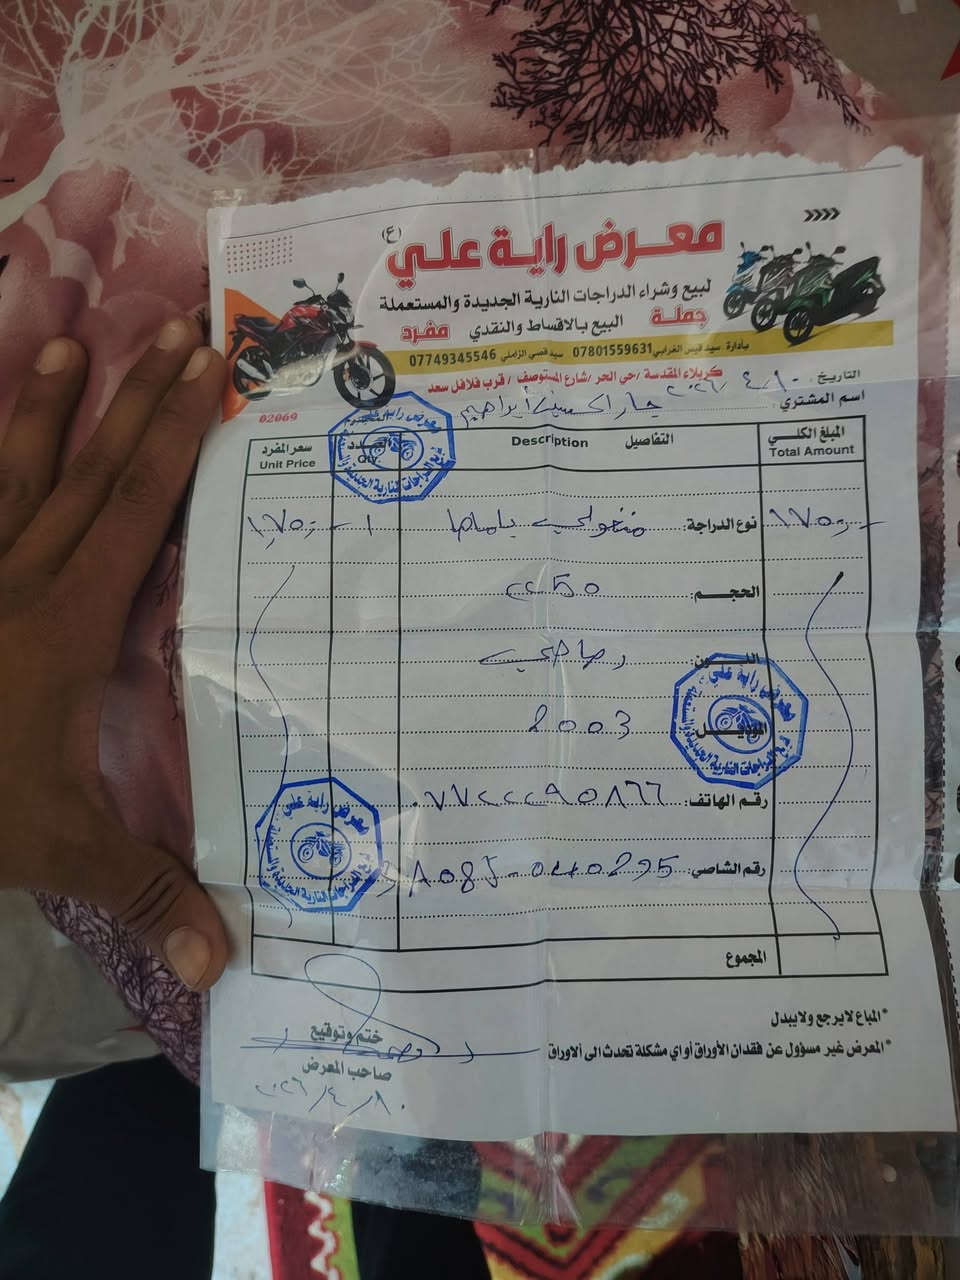 معرض راية علي (ع)
لبيع وشراء الدراجات النارية الجديدة والمستعملة
جملة البيع بالاقساط والنقدي مفرد
بأدارة سيد قيس الغرابي 07801559631 سيد قصي الزاملي 07749345546
كربلاء المقدسة / حي الحر / شارع المستوصف / قرب فلافل سعد
التاريخ : ٢٠٢٦/٤/١٠
اسم المشتري : ابراهيم
02069
المبلغ الكلي التفاصيل العدد سعر المفرد
Total Amount Description Qty. Unit Price
١٧٥٠ نوع الدراجة: منغولي ياماها ١ ١٧٥٠
الحجم: cc 50
اللون: رصاصي
الموديل: 2003
رقم الهاتف: ٠٧٧٢٢٢٩٥٨٦٦
رقم الشاصي: A08J-040295
المجموع
*المباع لايرجع ولايبدل
*المعرض غير مسؤول عن فقدان الأوراق أو اي مشكلة تحدث الى ألاوراق
ختم وتوقيع
صاحب المعرض
٢٠٢٦/٤/١٠
معرض راية علي
لبيع الدراجات النارية الجديدة والمستعملة